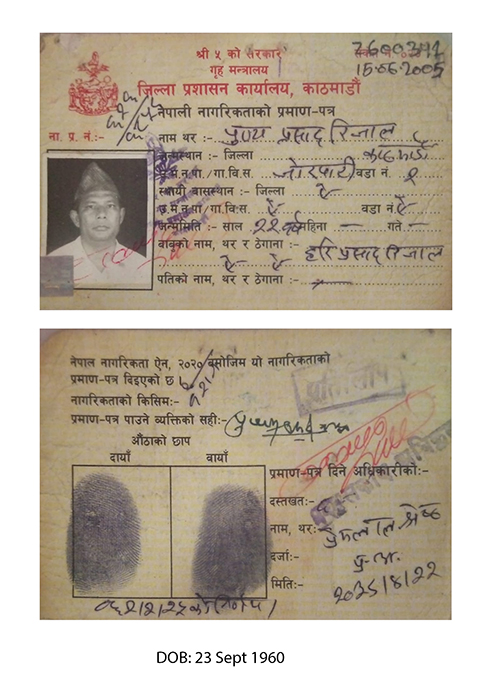 श्री ५ को सरकार
गृह मन्त्रालय
जिल्ला प्रशासन कार्यालय, काठमाडौं
15.06.2005
नेपाली नागरिकताको प्रमाण-पत्र
ना. प्र. नं.:-
नाम थर :- पुण्य प्रसाद रिजाल
जन्मस्थान :- जिल्ला काठमाडौं
न.पा. गा.वि.स. जोरपाटी वडा नं. २
स्थायी बासस्थान :- जिल्ला ऐ
न.पा. गा.वि.स. :- ऐ वडा नं. ऐ
जन्ममिति :- साल २२ वर्ष महिना — गते —
बाबुको नाम, थर र ठेगाना :- हरि प्रसाद रिजाल
ऐ ऐ
पतिको नाम, थर र ठेगाना :-
नेपाल नागरिकता ऐन, २०२० बमोजिम यो नागरिकताको
प्रमाण-पत्र दिइएको छ
नागरिकताको किसिम:-
प्रमाण-पत्र पाउने व्यक्तिको सही:-
औंठाको छाप
दायाँ बायाँ
प्रतिलिपि
प्रमाण-पत्र दिने अधिकारीको:-
दस्तखत:-
नाम, थर:-
दर्जा:- प्र.अ.
मिति:- २०३८/४/२२
DOB: 23 Sept 1960